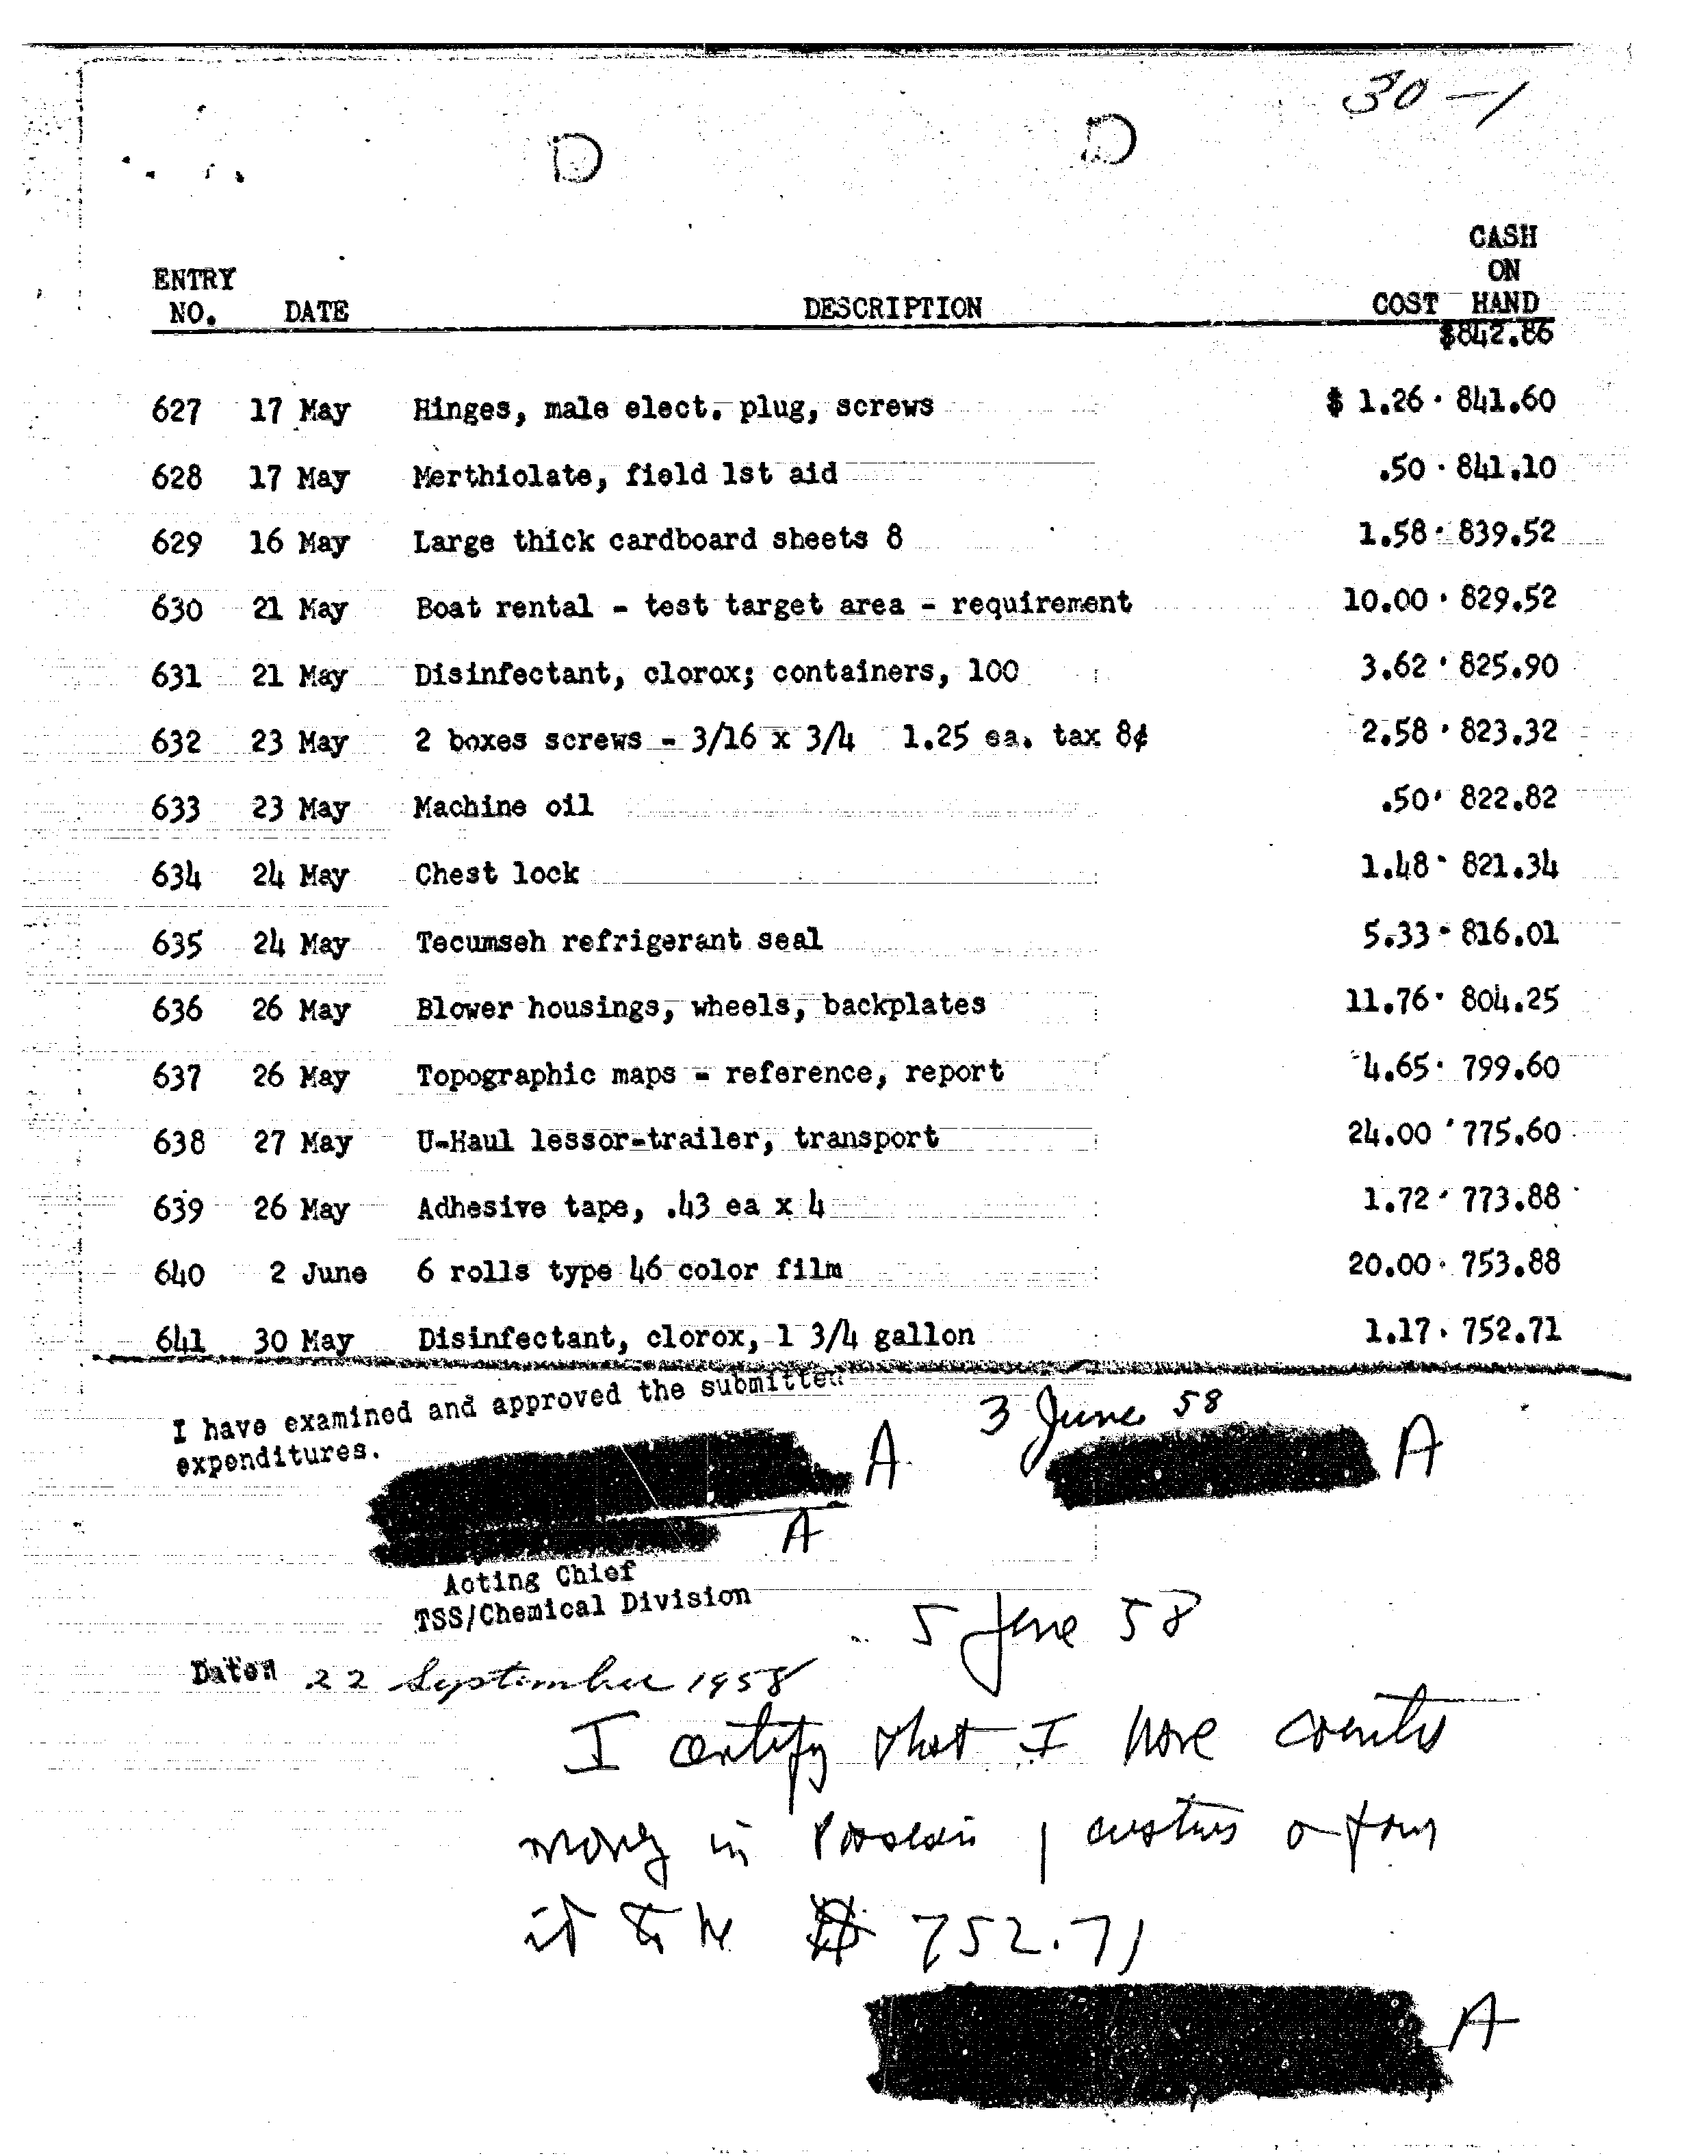 30-1
D D
CASH
ENTRY ON
NO. DATE DESCRIPTION COST HAND
$842.86
627 17 May Hinges, male elect. plug, screws $ 1.26 841.60
628 17 May Merthiolate, field 1st aid .50 841.10
629 16 May Large thick cardboard sheets 8 1.58 839.52
630 21 May Boat rental - test target area - requirement 10.00 829.52
631 21 May Disinfectant, clorox; containers, 100 3.62 825.90
632 23 May 2 boxes screws - 3/16 x 3/4 1.25 ea. tax 8¢ 2.58 823.32
633 23 May Machine oil .50 822.82
634 24 May Chest lock 1.48 821.34
635 24 May Tecumseh refrigerant seal 5.33 816.01
636 26 May Blower housings, wheels, backplates 11.76 804.25
637 26 May Topographic maps - reference, report 4.65 799.60
638 27 May U-Haul lessor-trailer, transport 24.00 775.60
639 26 May Adhesive tape, .43 ea x 4 1.72 773.88
640 2 June 6 rolls type 46 color film 20.00 753.88
641 30 May Disinfectant, clorox, 1 3/4 gallon 1.17 752.71
I have examined and approved the submitted
expenditures.
3 June 58
A A
A
Acting Chief
TSS/Chemical Division
5 June 58
Date: 22 September 1958
I certify that I have
money in
it to be $ 752.71
A